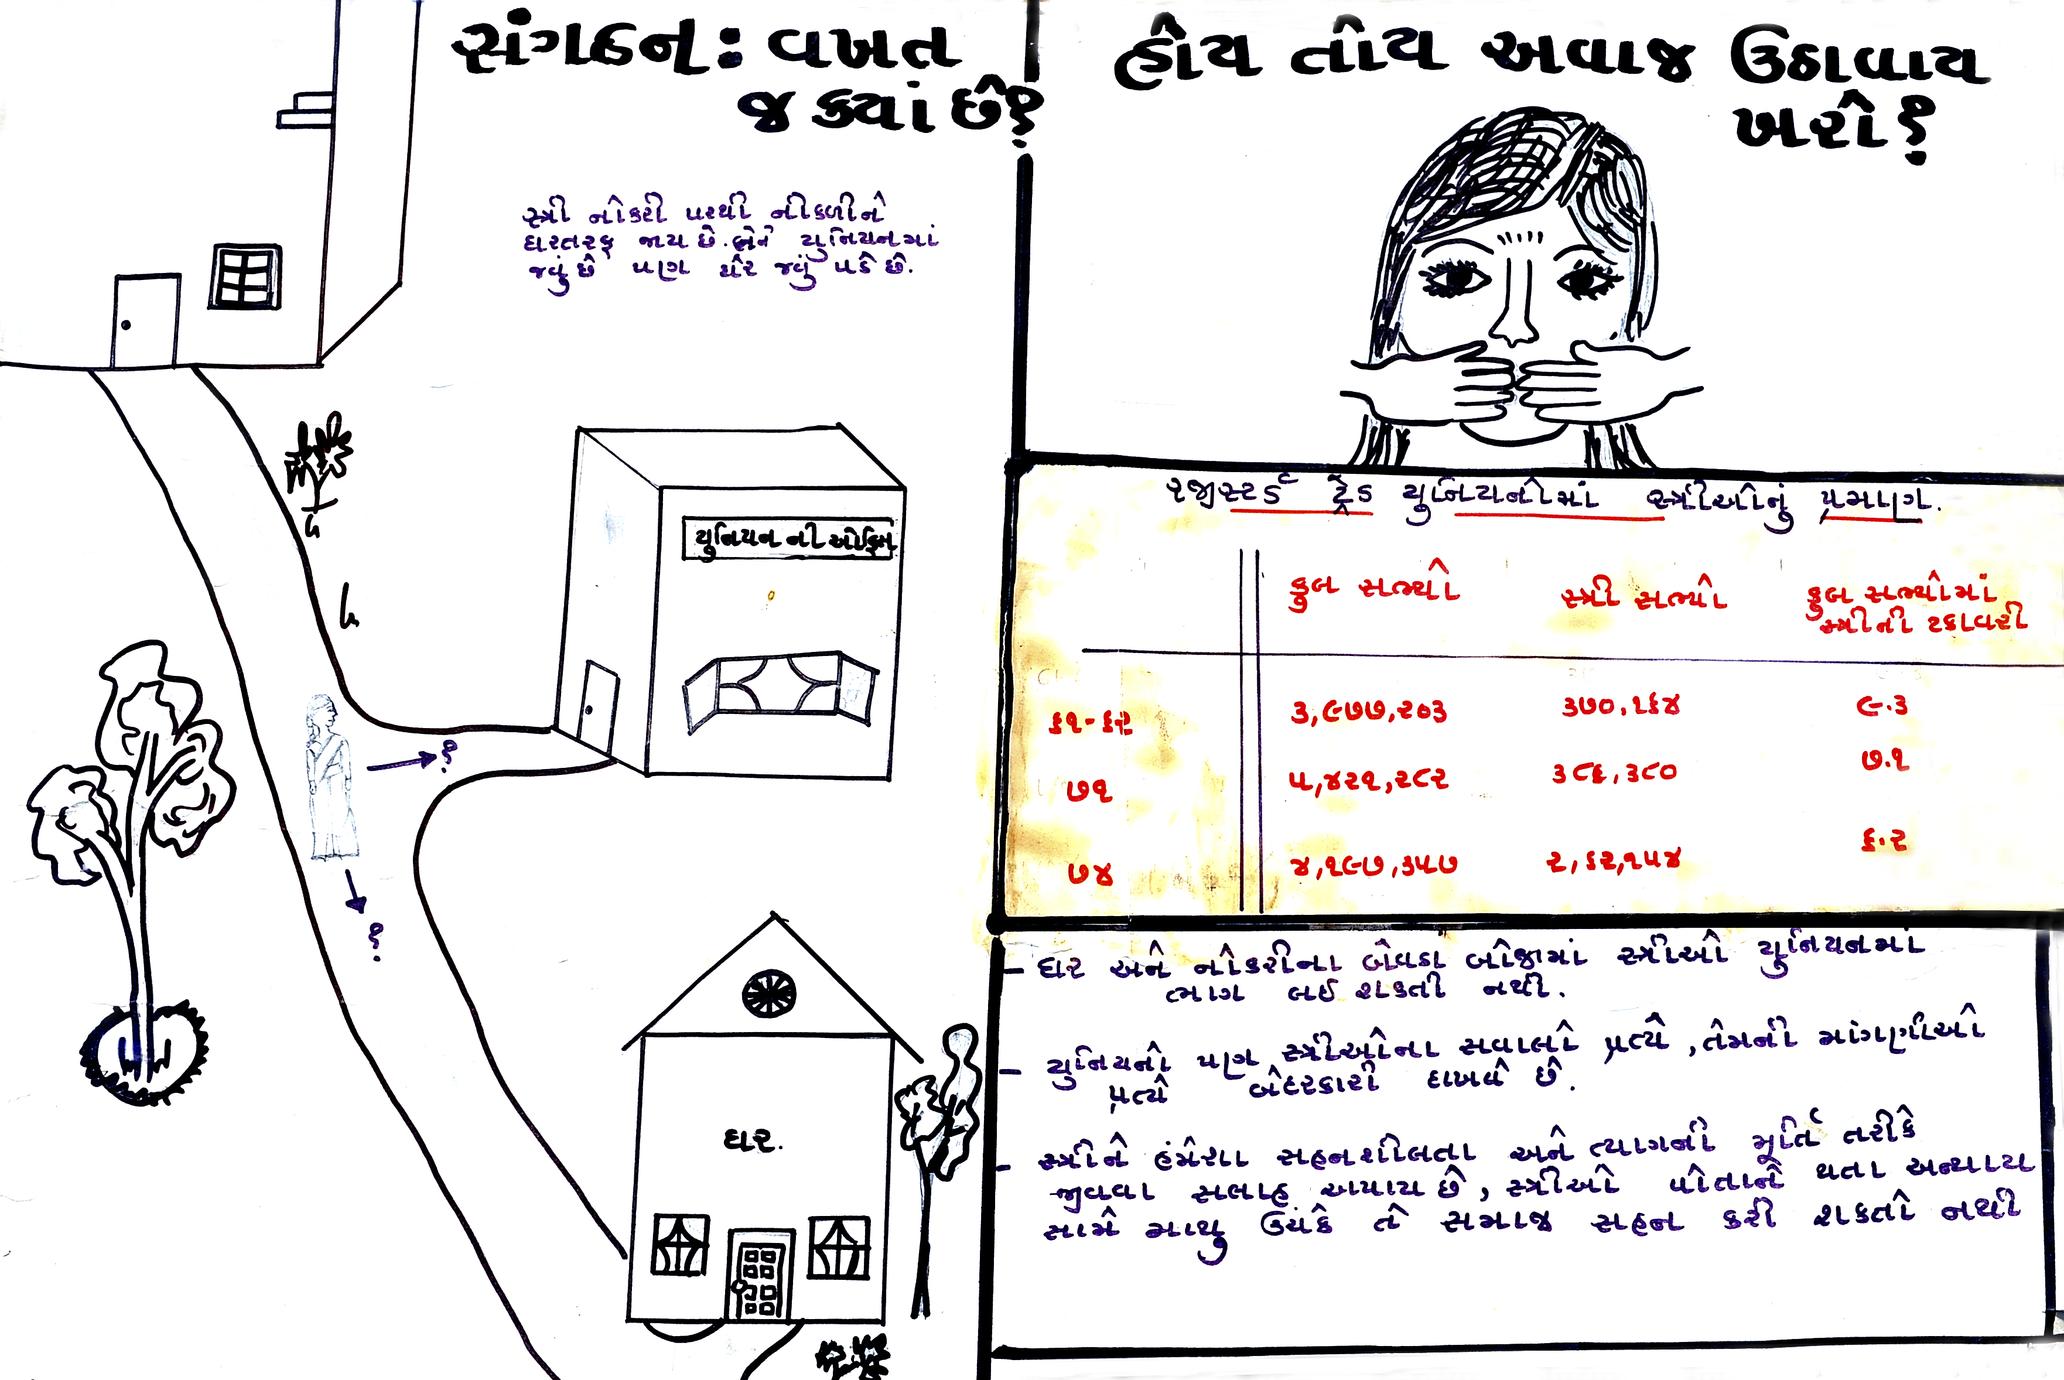 સંગઠન: વખત
જ ક્યાં છે?
સ્ત્રી નોકરી પરથી નીકળીને
ઘરતરફ જાય છે. એને યુનિયનમાં
જવું છે પણ ઘેર જવું પડે છે.
યુનિયન ની ઓફિસ
?
?
ઘર.
હોય તોય અવાજ ઉઠાવાય
ખરો?
રજીસ્ટર્ડ ટ્રેડ યુનિયનોમાં સ્ત્રીઓનું પ્રમાણ.
કુલ સભ્યો સ્ત્રી સભ્યો કુલ સભ્યોમાં
સ્ત્રીની ટકાવારી
૬૧-૬૨ ૩,૯૭૭,૨૦૩ ૩૭૦,૧૬૪ ૯.૩
૭૧ ૫,૪૨૧,૨૮૨ ૩૮૬,૩૮૦ ૭.૧
૭૪ ૪,૧૯૭,૩૫૭ ૨,૬૨,૧૫૪ ૬.૨
- ઘર અને નોકરીના બેવડા બોજામાં સ્ત્રીઓ યુનિયનમાં
ભાગ લઈ શકતી નથી.
- યુનિયનો પણ સ્ત્રીઓના સવાલો પ્રત્યે, તેમની માંગણીઓ
પ્રત્યે બેદરકારી દાખવે છે.
- સ્ત્રીને હંમેશા સહનશીલતા અને ત્યાગની મૂર્તિ તરીકે
જીવવા સલાહ અપાય છે, સ્ત્રીઓ પોતાને થતા અન્યાય
સામે માથુ ઉચકે તે સમાજ સહન કરી શકતો નથી